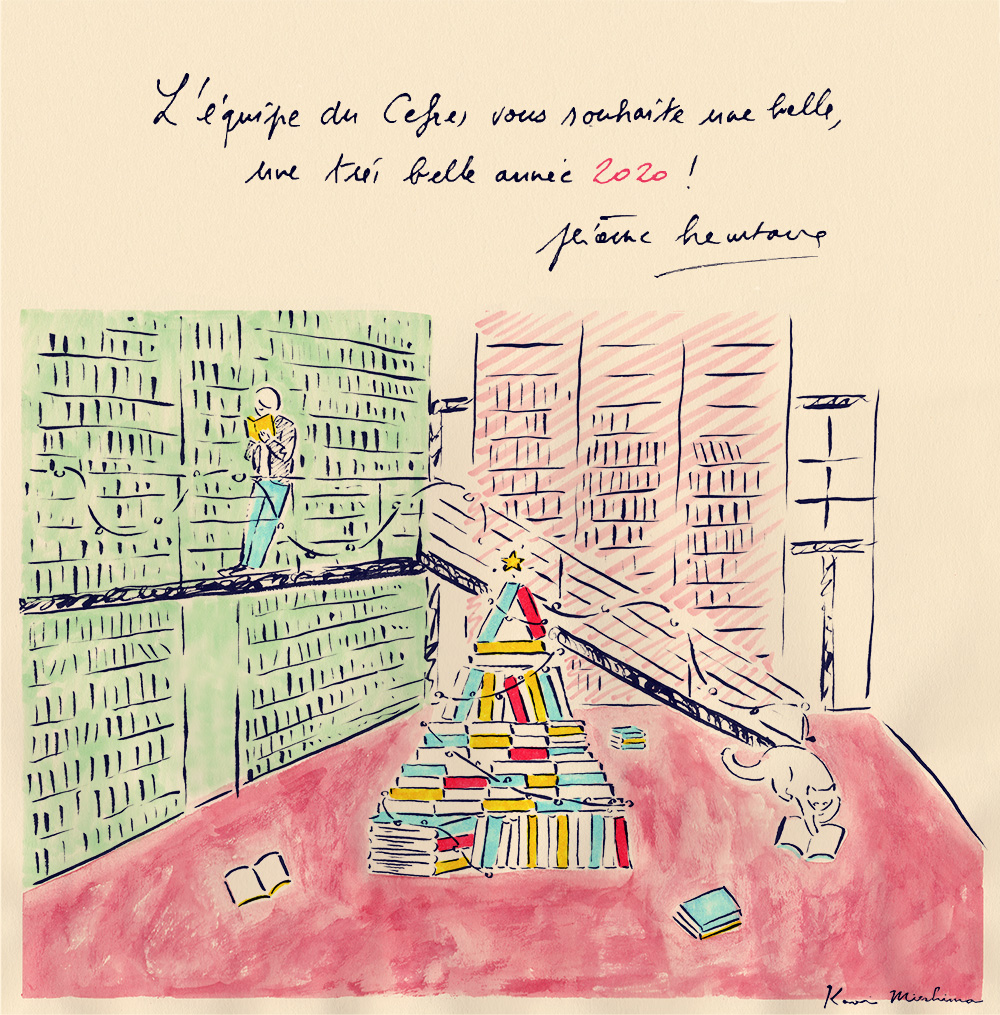 L'équipe du Cefres vous souhaite une belle,
une très belle année 2020 !
Jérôme Heurtaux
Kaori Mieshima